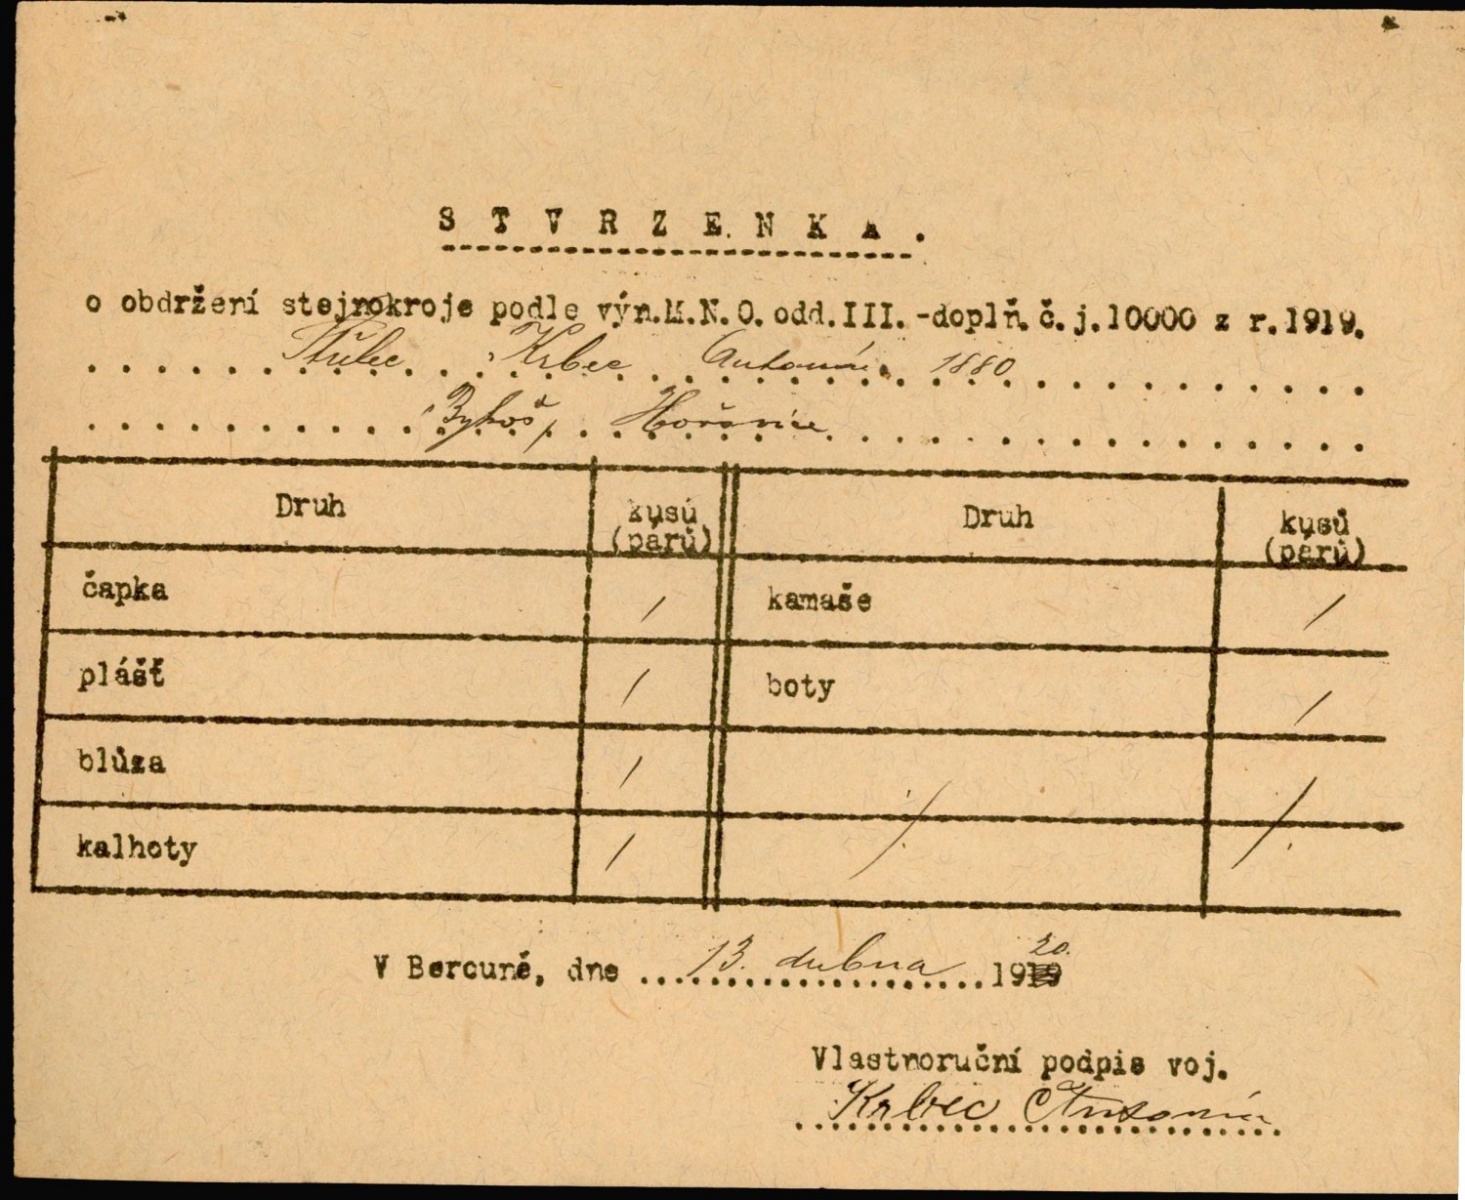 STVRZENKA.
o obdržení stejnokroje podle výn.M.N.O. odd.III.-doplň.č.j.10000 z r.1919.
Krbec Antonín 1880
Bykoš, Hořovice
Druh kusů (párů) Druh kusů (párů)
čapka / kamaše /
plášť / boty /
blůza /
kalhoty / ./. ./.
V Berouně, dne 13. dubna 1919 20.
Vlastnoruční podpis voj.
Krbec Antonín